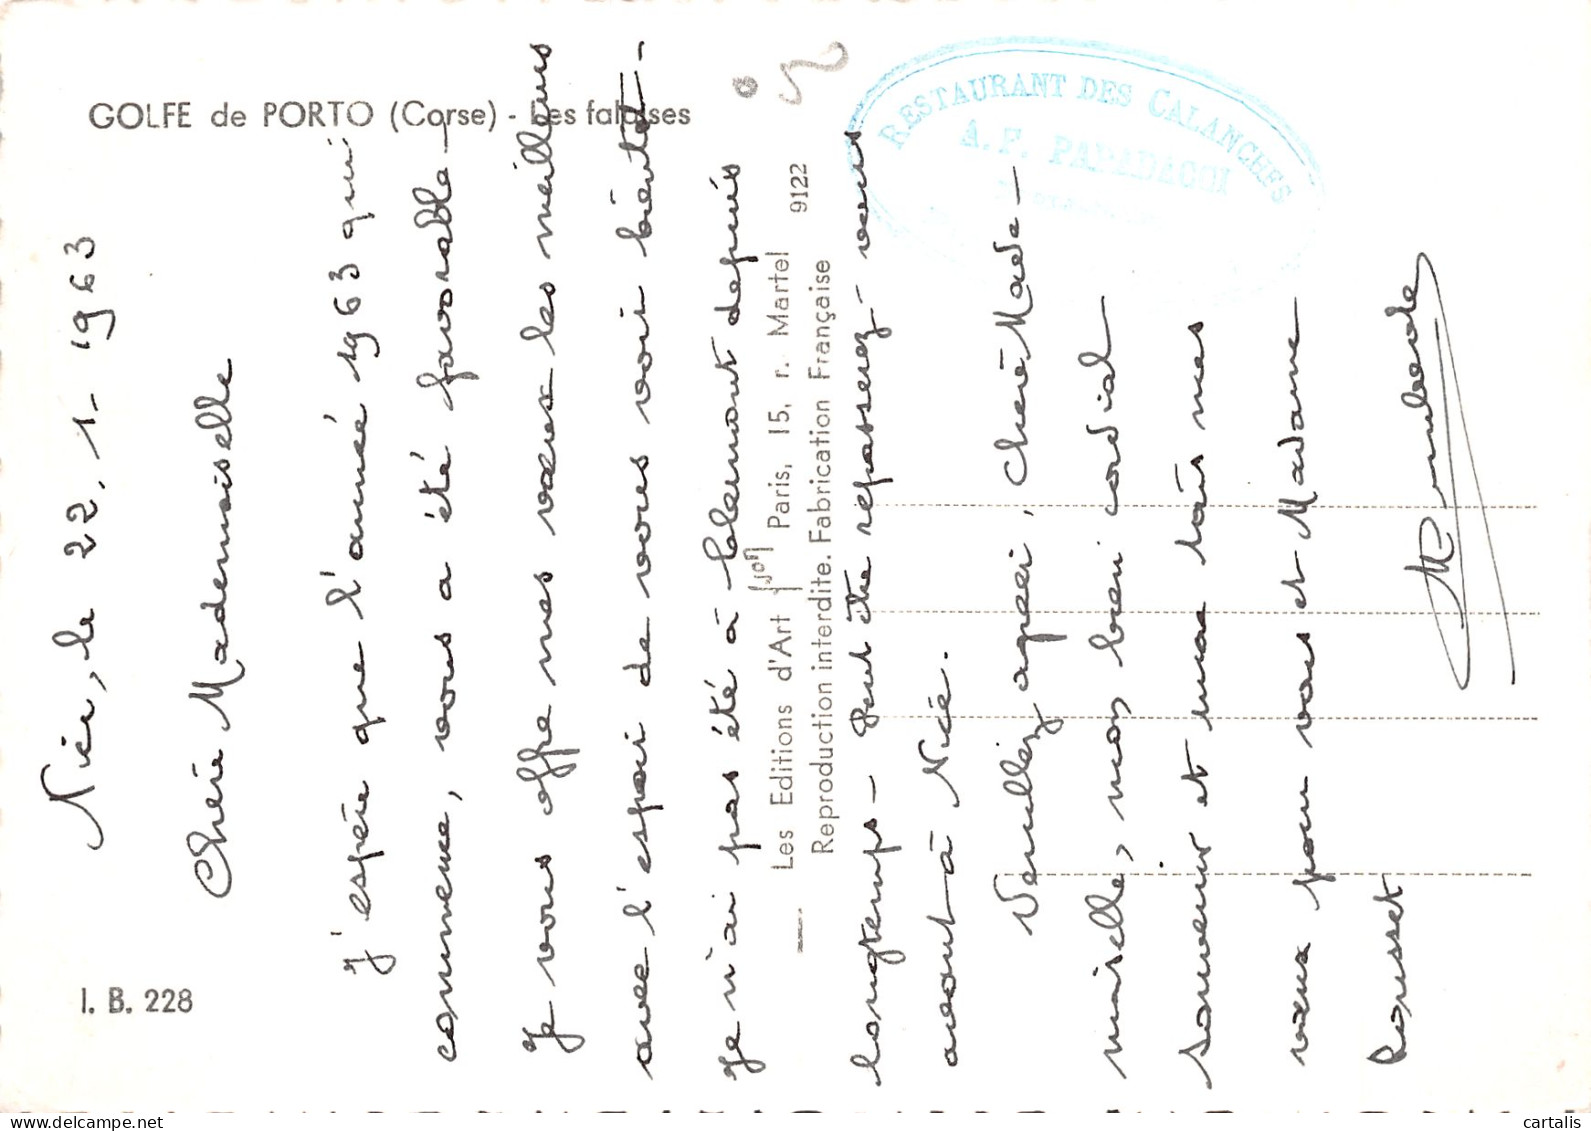 GOLFE de PORTO (Corse) - Les falaises
I. B. 228
RESTAURANT DES CALANCHES
A. F. PAPADACCI
9122
Les Editions d'Art Yvon Paris, 15, r. Martel
Reproduction interdite. Fabrication Française
Nice, le 22.1-1963
Chère Mademoiselle
J'espère que l'année 1963 qui
commence, vous a été favorable -
Je vous offre mes vœux les meilleurs
avec l'espoir de vous voir bientôt -
Je n'ai pas été à depuis
longtemps - Peut être repasserez-vous
avant à Nice.
Veuillez agréer, Chère Made-
moiselle, mon bien cordial
souvenir et mes tous mes
vœux pour vous et Madame
Rousset